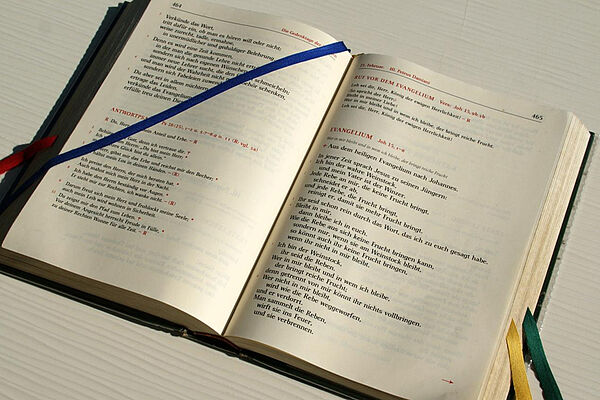 464
Die Gedenktage der
Verkünde das Wort,
tritt dafür ein, ob man es hören will oder nicht;
weise zurecht, tadle, ermahne,
in unermüdlicher und geduldiger Belehrung
Denn es wird eine Zeit kommen,
in der man die gesunde Lehre nicht
sondern sich nach eigenen Wünschen
immer neue Lehrer sucht, die den
schmeicheln;
und man wird der Wahrheit nicht
Gehör schenken,
sondern sich Fabeleien
Du aber sei in allem nüchtern,
ertrage das Leiden,
verkünde das Evangelium,
erfülle treu deinen Dienst
ANTWORTPSALM
R Du, Herr, mein Anteil und Erbe. – R
Behüte mich, Gott, denn ich vertraue dir;
Ich sage zum Herrn: „Du bist mein Herr;
mein ganzes Glück bist du allein."
Du, Herr, gibst mir das Erbe und reichst mir den Becher;
du hältst mein Los in deinen Händen. – (R)
Ich preise den Herrn, der mich beraten hat.
Auch mahnt mich mein Herz in der Nacht.
Ich habe den Herrn beständig vor Augen.
Er steht mir zur Rechten, ich wanke nicht. – (R)
Darum freut sich mein Herz und frohlockt meine Seele;
auch mein Leib wird wohnen in Sicherheit.
Du zeigst mir den Pfad zum Leben.
Vor deinem Angesicht herrscht Freude in Fülle,
zu deiner Rechten Wonne für alle Zeit. – R
21. Februar · Hl. Petrus Damiani
465
RUF VOR DEM EVANGELIUM Vers: Joh 15, 9b.5b
Lob sei dir, Herr, König der ewigen Herrlichkeit! – R
(So spricht der Herr:)
Bleibt in meiner Liebe!
Wer in mir bleibt und in wem ich bleibe, der bringt reiche Frucht.
Lob sei dir, Herr, König der ewigen Herrlichkeit!
EVANGELIUM Joh 15, 1–8
Wer in mir bleibt und in wem ich bleibe, der bringt reiche Frucht
+ Aus dem heiligen Evangelium nach Johannes.
In jener Zeit sprach Jesus zu seinen Jüngern:
Ich bin der wahre Weinstock,
und mein Vater ist der Winzer.
Jede Rebe an mir, die keine Frucht bringt,
schneidet er ab,
und jede Rebe, die Frucht bringt,
reinigt er, damit sie mehr Frucht bringt.
Ihr seid schon rein durch das Wort, das ich zu euch gesagt habe.
Bleibt in mir,
dann bleibe ich in euch.
Wie die Rebe aus sich keine Frucht bringen kann,
sondern nur, wenn sie am Weinstock bleibt,
so könnt auch ihr keine Frucht bringen,
wenn ihr nicht in mir bleibt.
Ich bin der Weinstock,
ihr seid die Reben.
Wer in mir bleibt und in wem ich bleibe,
der bringt reiche Frucht;
denn getrennt von mir könnt ihr nichts vollbringen.
Wer nicht in mir bleibt,
wird wie die Rebe weggeworfen,
und er verdorrt.
Man sammelt die Reben,
wirft sie ins Feuer,
und sie verbrennen.